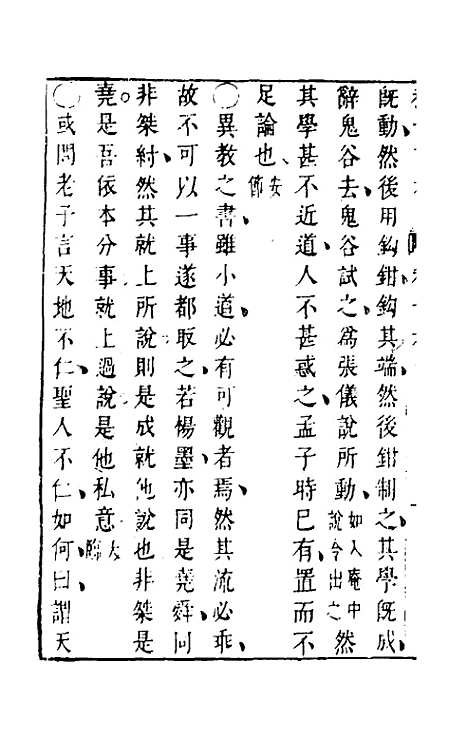 既動然後用鈎鉗鈎其端然後鉗制之其學既成
辭鬼谷去鬼谷試之爲張儀說所動如入庵中說令出之然
其學甚不近道人不甚惑之孟子時已有置而不
足論也
○異教之書雖小道必有可觀者焉然其流必乖
故不可以一事遂都取之若楊墨亦同是堯舜同
非桀紂然其就上所說則是成就他說也非桀是
堯是吾依本分事就上過說是他私意大
○或問老子言天地不仁聖人不仁如何曰謂天